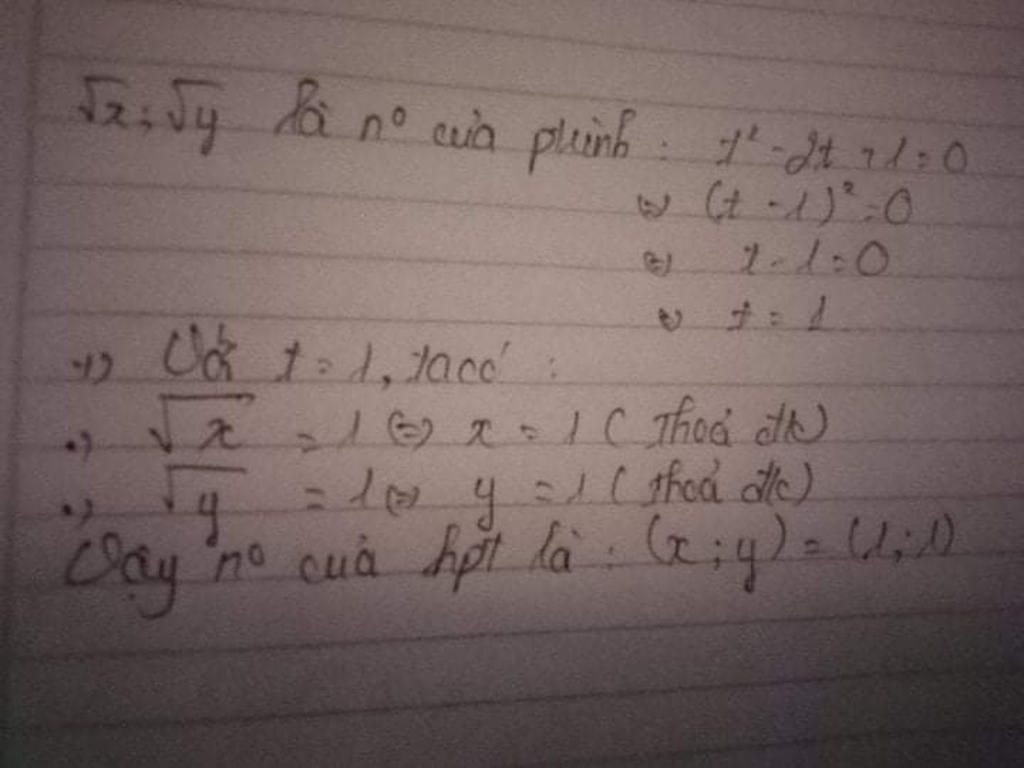 √x ; √y là nº của ptrình : t² - 2t + 1 = 0
⇔ (t - 1)² = 0
⇔ t - 1 = 0
⇔ t = 1
+) Với t = 1, ta có :
•) √x = 1 ⇔ x = 1 ( thoả đk)
•) √y = 1 ⇔ y = 1 ( thoả đk)
Vậy nº của hpt là : (x ; y) = (1 ; 1)